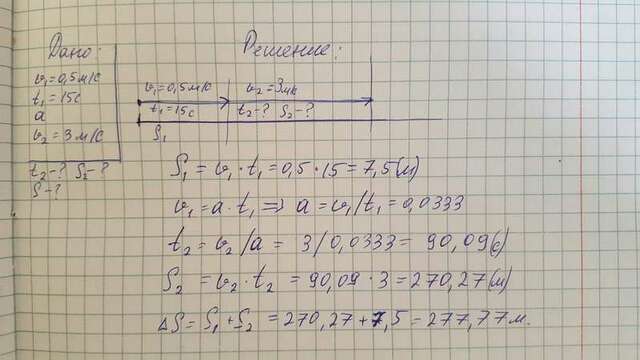 Дано:
v₁=0,5м/с
t₁=15с
a
v₂=3м/с
t₂-? S₂-?
S-?
Решение:
v₁=0,5м/с v₂=3м/с
t₁=15с t₂-? S₂-?
S₁
S₁ = v₁·t₁ = 0,5·15 = 7,5(м)
v₁ = a·t₁ ⇒ a = v₁/t₁ = 0,0333
t₂ = v₂/a = 3/0,0333 = 90,09(с)
S₂ = v₂·t₂ = 90,09·3 = 270,27(м)
ΔS = S₁+S₂ = 270,27+7,5 = 277,77м.